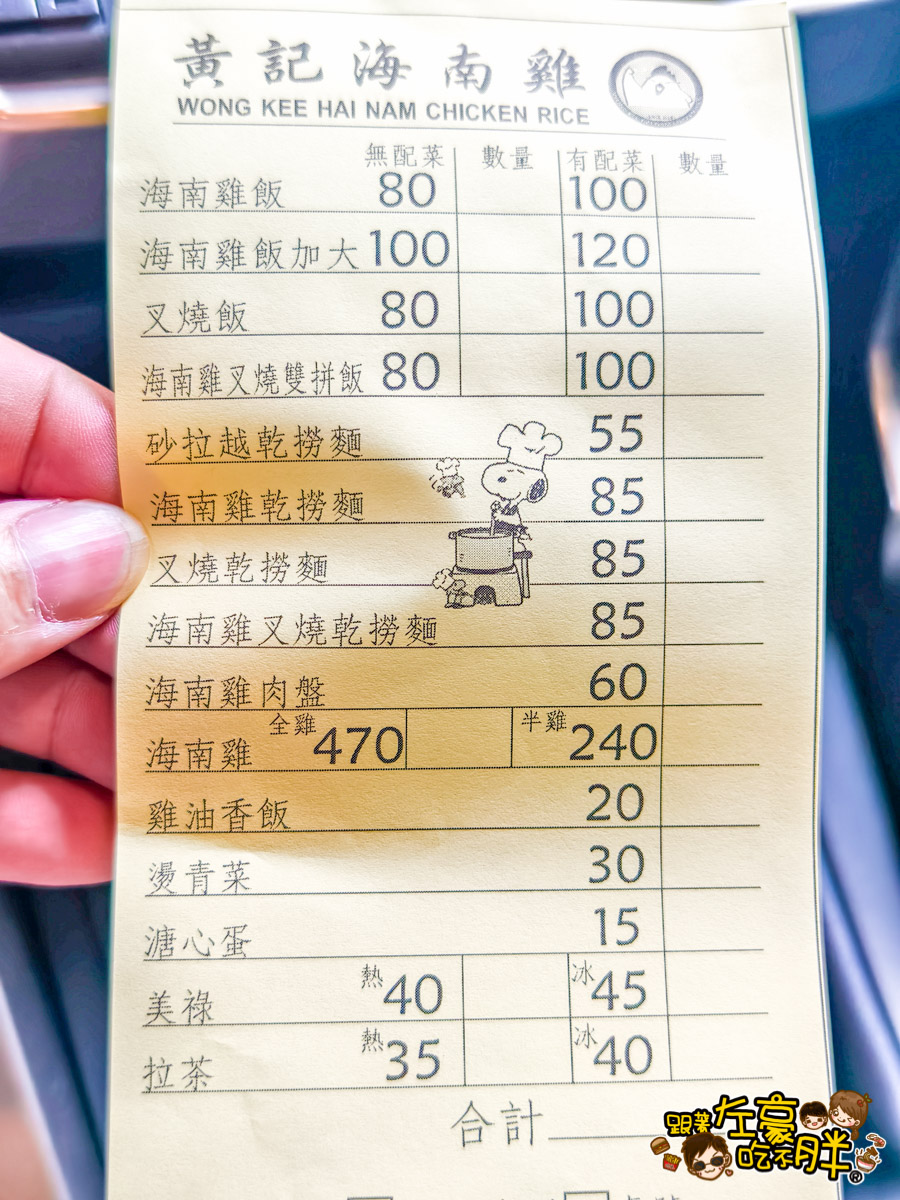 黃記海南雞
WONG KEE HAI NAM CHICKEN RICE
無配菜 數量 有配菜 數量
海南雞飯 80 100
海南雞飯加大 100 120
叉燒飯 80 100
海南雞叉燒雙拼飯 80 100
砂拉越乾撈麵 55
海南雞乾撈麵 85
叉燒乾撈麵 85
海南雞叉燒乾撈麵 85
海南雞肉盤 60
海南雞 全雞 470 半雞 240
雞油香飯 20
燙青菜 30
溏心蛋 15
美祿 熱 40 冰 45
拉茶 熱 35 冰 40
合計
跟著左豪
吃不胖®